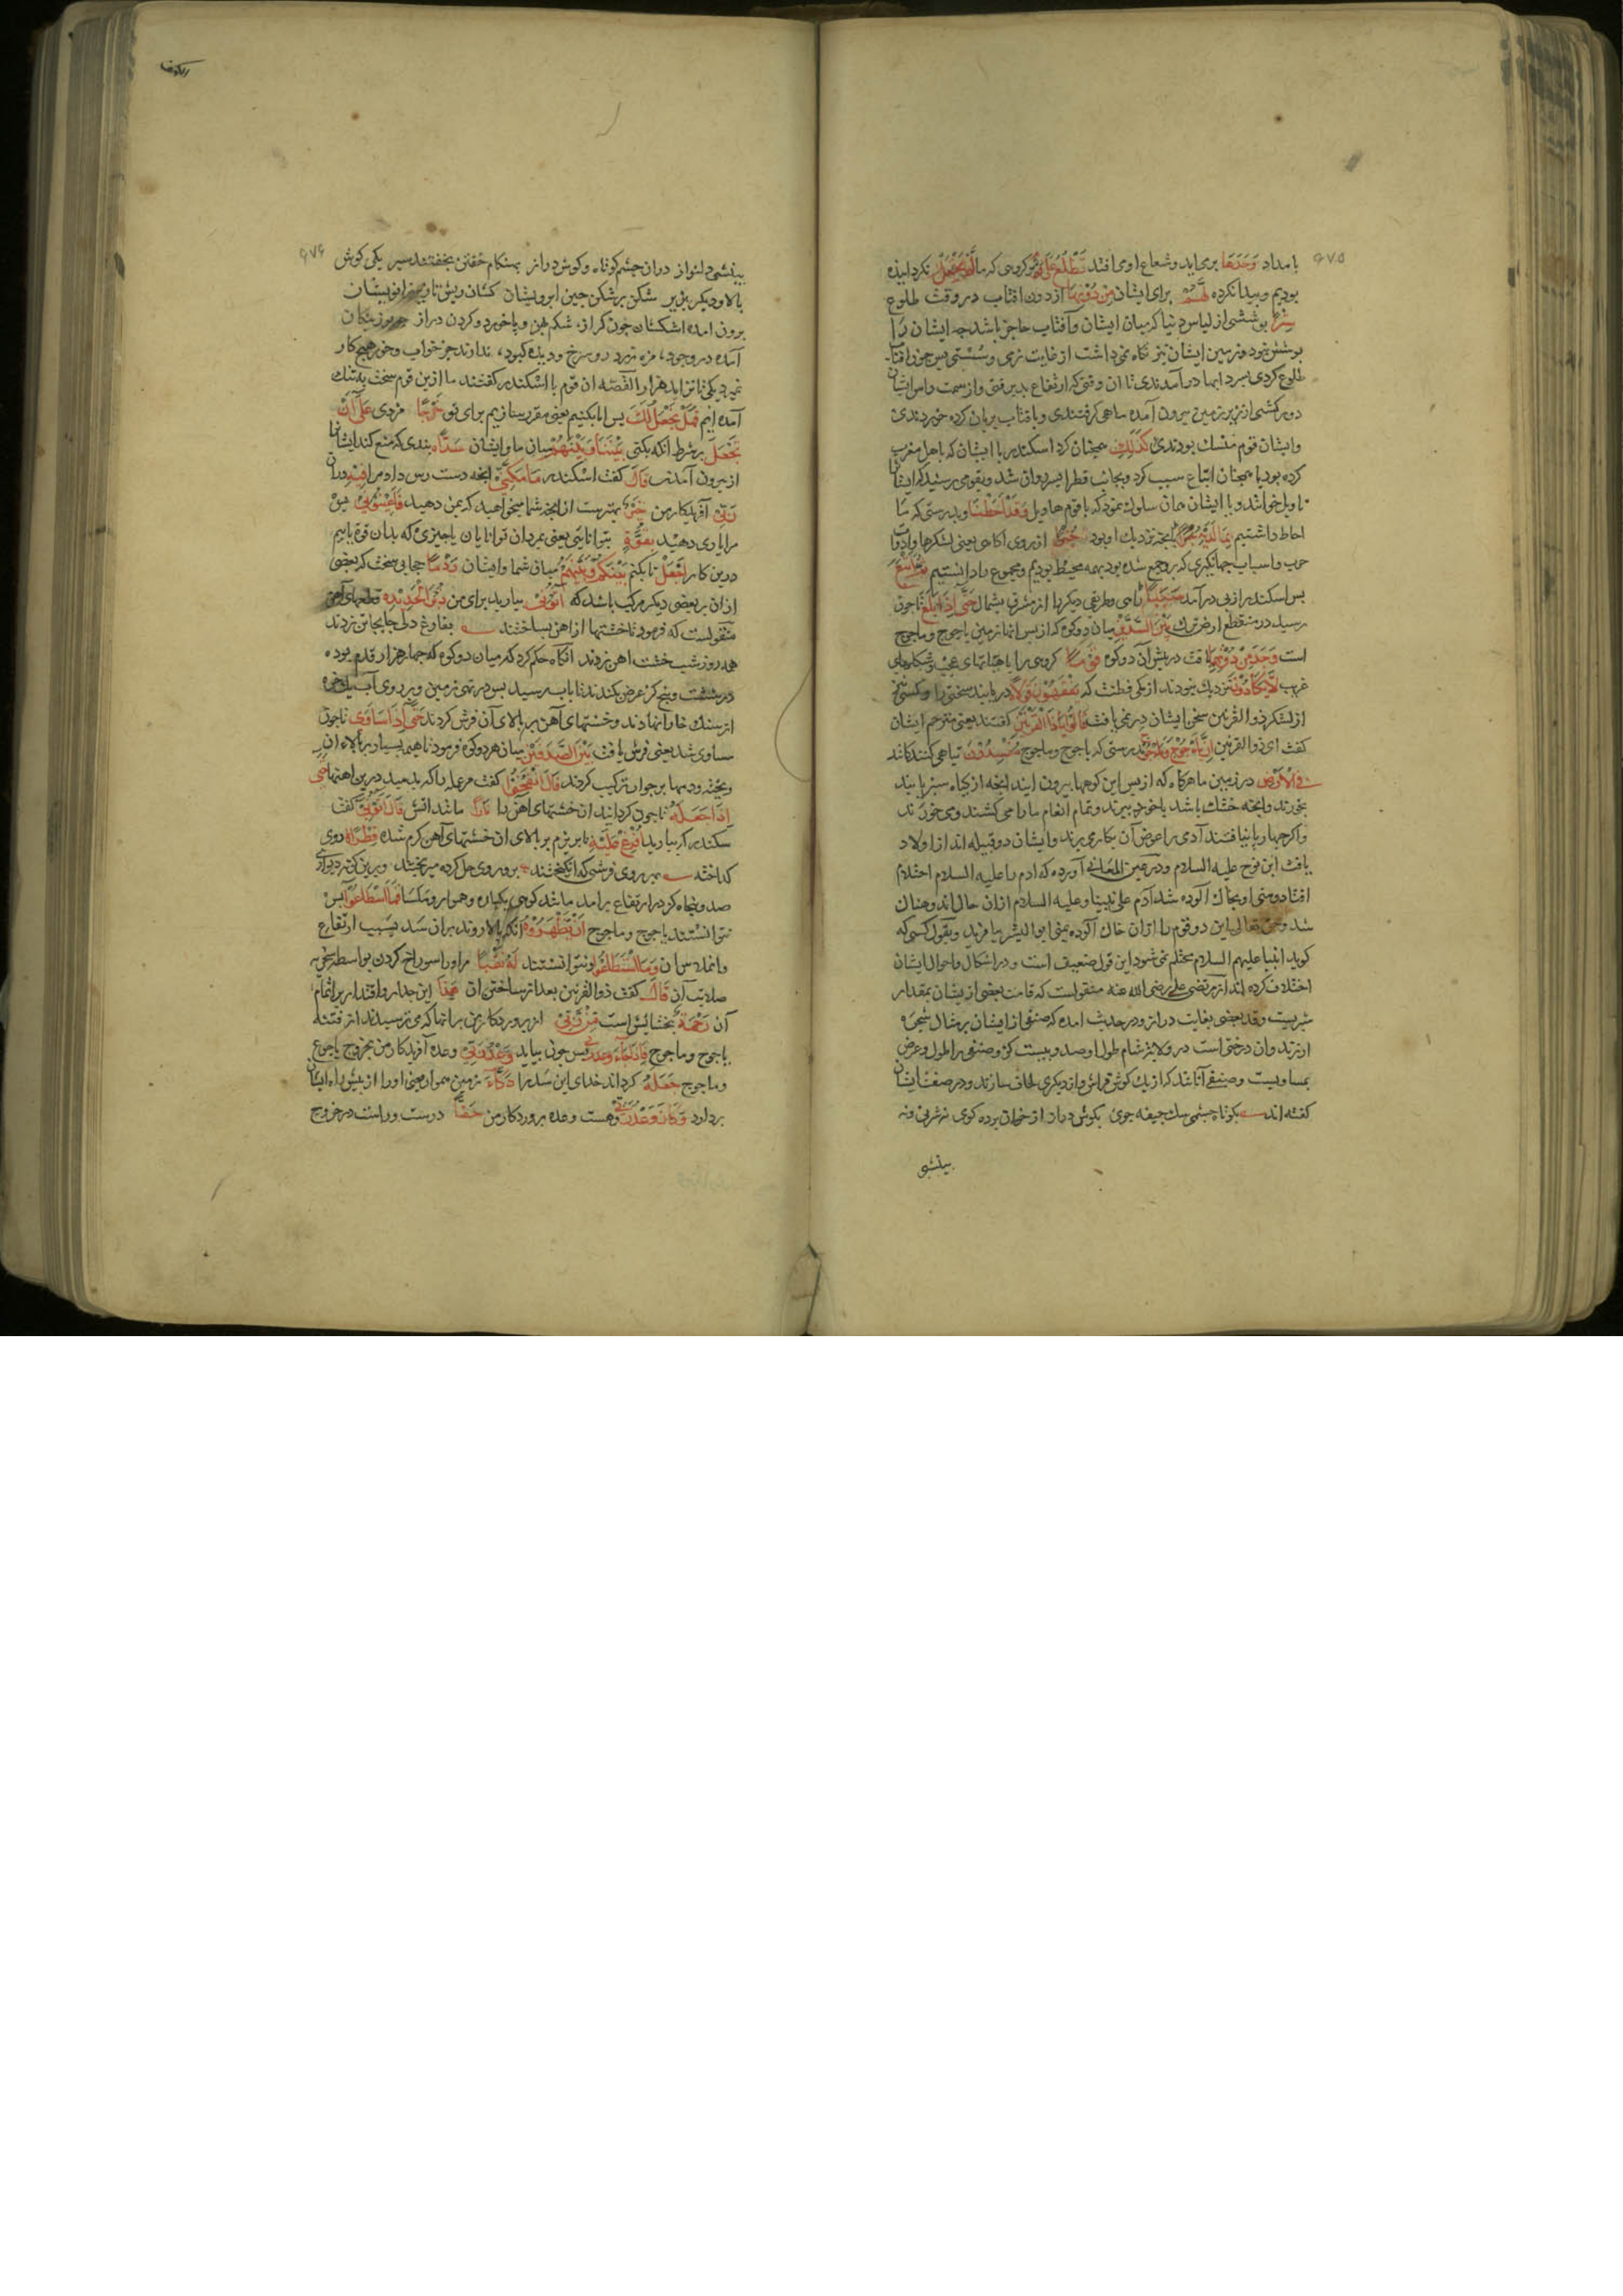 ۶۷۵
بامداد وَجَدَهَا برمی‌اید و شعاع او می افتد تَطْلُعُ عَلَى قَوْمٍ بر کروهی که ما لَمْ نَجْعَلْ نکردانیده
بودیم و پیدا نکرده لَهُمْ برای ایشان مِنْ دُونِهَا از دون افتاب در وقت طلوع
سِتْرًا پوششی از لباس و بنا که میان ایشان و آفتاب حاجز باشد چه ایشان را
پوشش نبود و زمین ایشان بنا نکاه نمی داشت از غایت نرمی و سستی پس چون افتاب
طلوع کردی بسردابها در آمدندی تا ان وقتی که ارتفاع پذیرفتی و از سمت راس ایشان
در کشتی از زیر زمین بیرون آمده ماهی کرفتندی و بافتاب بریان کرده خوردندی
وایشان قوم منسک بودندی كَذَلِكَ همچنان کرد اسکندر با ایشان که باهل مغرب
کرده بود یا همچنان اتباع سبب کرد و بجانب قطر ایسر روان شد و بقومی رسید که ایشانرا
تاویل خوانند و با ایشان همان سلوک نمود که با قوم هاویل وَقَدْ أَحَطْنَا و بدرستی که ما
احاطه داشتیم بِمَا لَدَيْهِ بانچه نزدیک او بود خُبْرًا از روی اکاهی یعنی لشکرها و ادوات
حرب و اسباب جهانکیری که برو جمع شده بود بهمه محیط بودیم و مجموع را دانستیم ثُمَّ أَتْبَعَ
پس اسکندر از پی در آمد سَبَبًا راهی و طریقی دیکر را از مشرق بشمال حَتَّى إِذَا بَلَغَ تا چون
رسید در منقطع ارض ترک بَيْنَ السَّدَّيْنِ میان دو کوه که از پس انها زمین یاجوج و ماجوج
است وَجَدَ مِنْ دُونِهِمَا یافت در پیش آن دو کوه قَوْمًا کروهی را با هیاتهای عجیب و شکلهای
غریب لَا يَكَادُونَ نزدیک نبودند از کمی فطنت که يَفْقَهُونَ قَوْلًا دریابند سخنی را و کسی نیز
از لشکر ذوالقرنین سخن ایشان در نمی یافت قَالُوا يَا ذَا الْقَرْنَيْنِ کفتند یعنی مترجم ایشان
کفت ای ذوالقرنین إِنَّ يَأْجُوجَ وَمَأْجُوجَ بدرستی که یاجوج و ماجوج مُفْسِدُونَ تباهی کنندکانند
فِي الْأَرْضِ در زمین ما هرکاه که از پس این کوهها بیرون ایند انچه از کیاه سبز یابند
بخورند و انچه خشک باشد با خود ببرند و تمام انعام ما را می کشند و می خورند
واکر چهارپا نیافتند آدمی را عوض آن بکار می برند و ایشان دو قبیله اند از اولاد
یافث ابن نوح علیه السلام و در عین المعانی آورده که ادم را علیه السلام احتلام
افتاد و منی او بخاک آلوده شد آدم علی نبینا و علیه السلام ازان حال اندوهناک
شد و حق تعالی این دو قوم را ازان خاک آلوده بمنی ابو البشر بیافرید و بقول کسی که
کوید انبیا علیهم السلام محتلم نمی شود این قول ضعیف است و در اشکال و احوال ایشان
اختلاف کرده اند از مرتضی علی رضی الله عنه منقولست که قامت بعضی از یشان بمقدار
شبریست و قد بعضی بغایت دراز و در حدیث امده که صنفی از ایشان بر مثال شجره
ارزند وان درختی است در ولایت شام طول او صد و بیست کز و صنفی را طول و عرض
مساویست و صنفی آنانند که از یک کوش فراش و از دیکری لحاف سازند و در صفت ایشان
کفته اند بکوتاه چشمی سک جیفه جوی بکوش دراز از خران برده کوی نه شربی و نه
بینشی
۶۷۶
بینشی دلنواز دران چشم کوتاه و کوش دراز بهنکام خفتن بخفتند سیر یکی کوش
بالا و دیکر بزیر شکن بر شکن چین ابرویشان کشان ریش تا زانویشان
برون امده اشکشان چون کراز شکم پهن و پا خورد و کردن دراز
آمده در وجود مژه زرد و رو سرخ و دیده کبود ندارند جز خواب و خور هیچ کار
نمیرد یکی تا نزاید هزار القصه ان قوم با اسکندر کفتند ما ازین قوم سخت بتنک
آمده ایم فَهَلْ نَجْعَلُ لَكَ پس ایا بکنیم یعنی مقرر سازیم برای تو خَرْجًا مزدی عَلَى أَنْ
تَجْعَلَ بشرط انکه بکنی بَيْنَنَا وَبَيْنَهُمْ میان ما و ایشان سَدًّا بندی که منع کند ایشانرا
از بیرون آمدن قَالَ کفت اسکندر مَا مَكَّنِّي انچه دست رس داد مرا فِيهِ دران
رَبِّي آفریدکار من خَيْرٌ بهترست ازانچه شما میخواهید که بمن دهید فَأَعِينُونِي پس
مرا یاری دهید بِقُوَّةٍ بتوانایی یعنی بمردان توانا یا ن یا چیزی که بدان قوة یابیم
درین کار أَجْعَلْ تا بکنم بَيْنَكُمْ وَبَيْنَهُمْ میان شما و ایشان رَدْمًا حجابی سخت که بعضی
ازان بر بعضی دیکر مرکب باشد که آتُونِي بیارید برای من زُبَرَ الْحَدِيدِ قطعهای آهن
منقولست که فرمود تا خشتها از اهن بساختند بفارغ دلی جابجا تن زدند
همه روز شب خشت اهن زدند انکاه حکم کرد که میان دو کوه که چهار هزار قدم بوده
در شصت و پنج کز عرض بکندند تا باب رسید پس در تهی زمین و بر روی آب
از سنک خارا نهادند و خشتهای آهن بر بالای آن فرش کردند حَتَّى إِذَا سَاوَى تا چون
مساوی شد یعنی فرش یافت بَيْنَ الصَّدَفَيْنِ میان هر دو کوه فرمود تا هیمه بسیار بر بالاء ان
ریخته و دمها بر جوانب ترکیب کردند قَالَ انْفُخُوا کفت مر عمله را که بدمید درین اهنها حَتَّى
إِذَا جَعَلَهُ تا چون کردانید ان خشتهای آهن را نَارًا مانند اتش قَالَ آتُونِي کفت
سکندر که بیارید أُفْرِغْ عَلَيْهِ تا بریزم بر بالای ان خشتهای آهن کرم شده قِطْرًا روی
کداخته بر روی فرشی که انکیختند برو روی حل کرده میریختند و برین کونه دیواری
صد و پنجاه کز در ارتفاع برامد مانند کوهی یکپاره و هموار و یکسان فَمَا اسْطَاعُوا پس
نتوانستند یاجوج و ماجوج أَنْ يَظْهَرُوهُ انکه بالا روند بران سد بسبب ارتفاع
و املاس ان وَمَا اسْتَطَاعُوا و نتوانستند لَهُ نَقْبًا مر او را سوراخ کردن بواسطه سختی و
صلابت آن قَالَ کفت ذوالقرنین بعد از ساختن ان هَذَا این جدار و اقتدار بر اتمام
آن رَحْمَةٌ بخشایش است مِنْ رَبِّي از پروردکار من برانها که می ترسیدند از فتنه
یاجوج و ماجوج فَإِذَا جَاءَ وَعْدُ رَبِّي پس چون بیاید وَعْدُ رَبِّي وعده آفریدکار من بخروج یاجوج
و ماجوج جَعَلَهُ کرداند خدای این سد را دَكَّاءَ زمین هموار یعنی او را از پیش راه ایشان
بردارد وَكَانَ وَعْدُ رَبِّي و هست وعده پروردکار من حَقًّا درست و راست در خروج